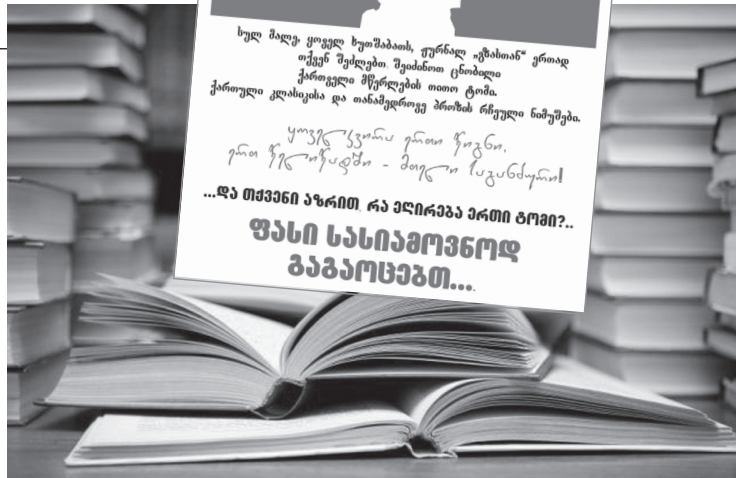 სულ მალე, ყოველ ხუთშაბათს, ჟურნალ „გზასთან“ ერთად
თქვენ შეძლებთ შეიძინოთ ცნობილი
ქართველი მწერლების თითო ტომი.
ქართული კლასიკისა და თანამედროვე პროზის რჩეული ნიმუშები.
ყოველკვირა ერთი წიგნი,
ერთ წელიწადში - მთელი საგანძური!
...და თქვენი აზრით, რა ეღირება ერთი ტომი?..
ფასი სასიამოვნოდ
გაგაოცებთ...